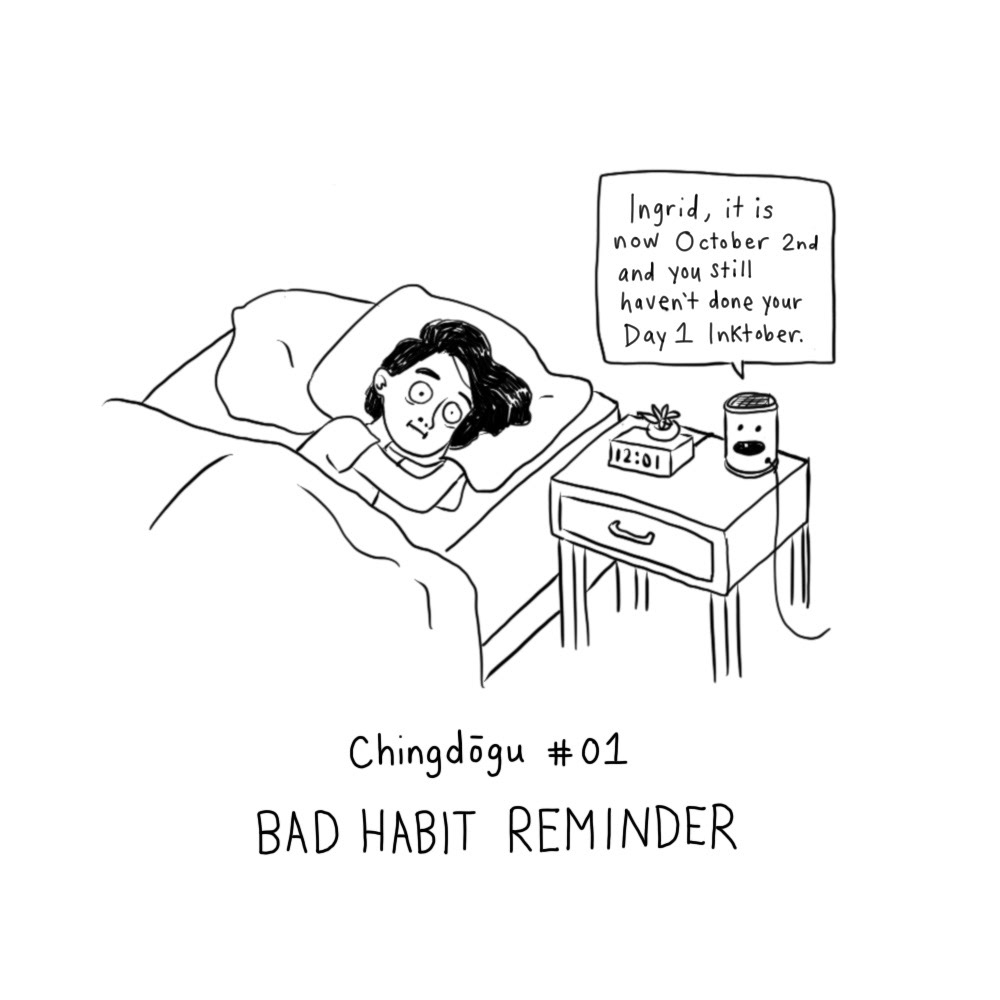 Ingrid, it is
now October 2nd
and you still
haven't done your
Day 1 Inktober.
12:01
Chingdōgu #01
BAD HABIT REMINDER